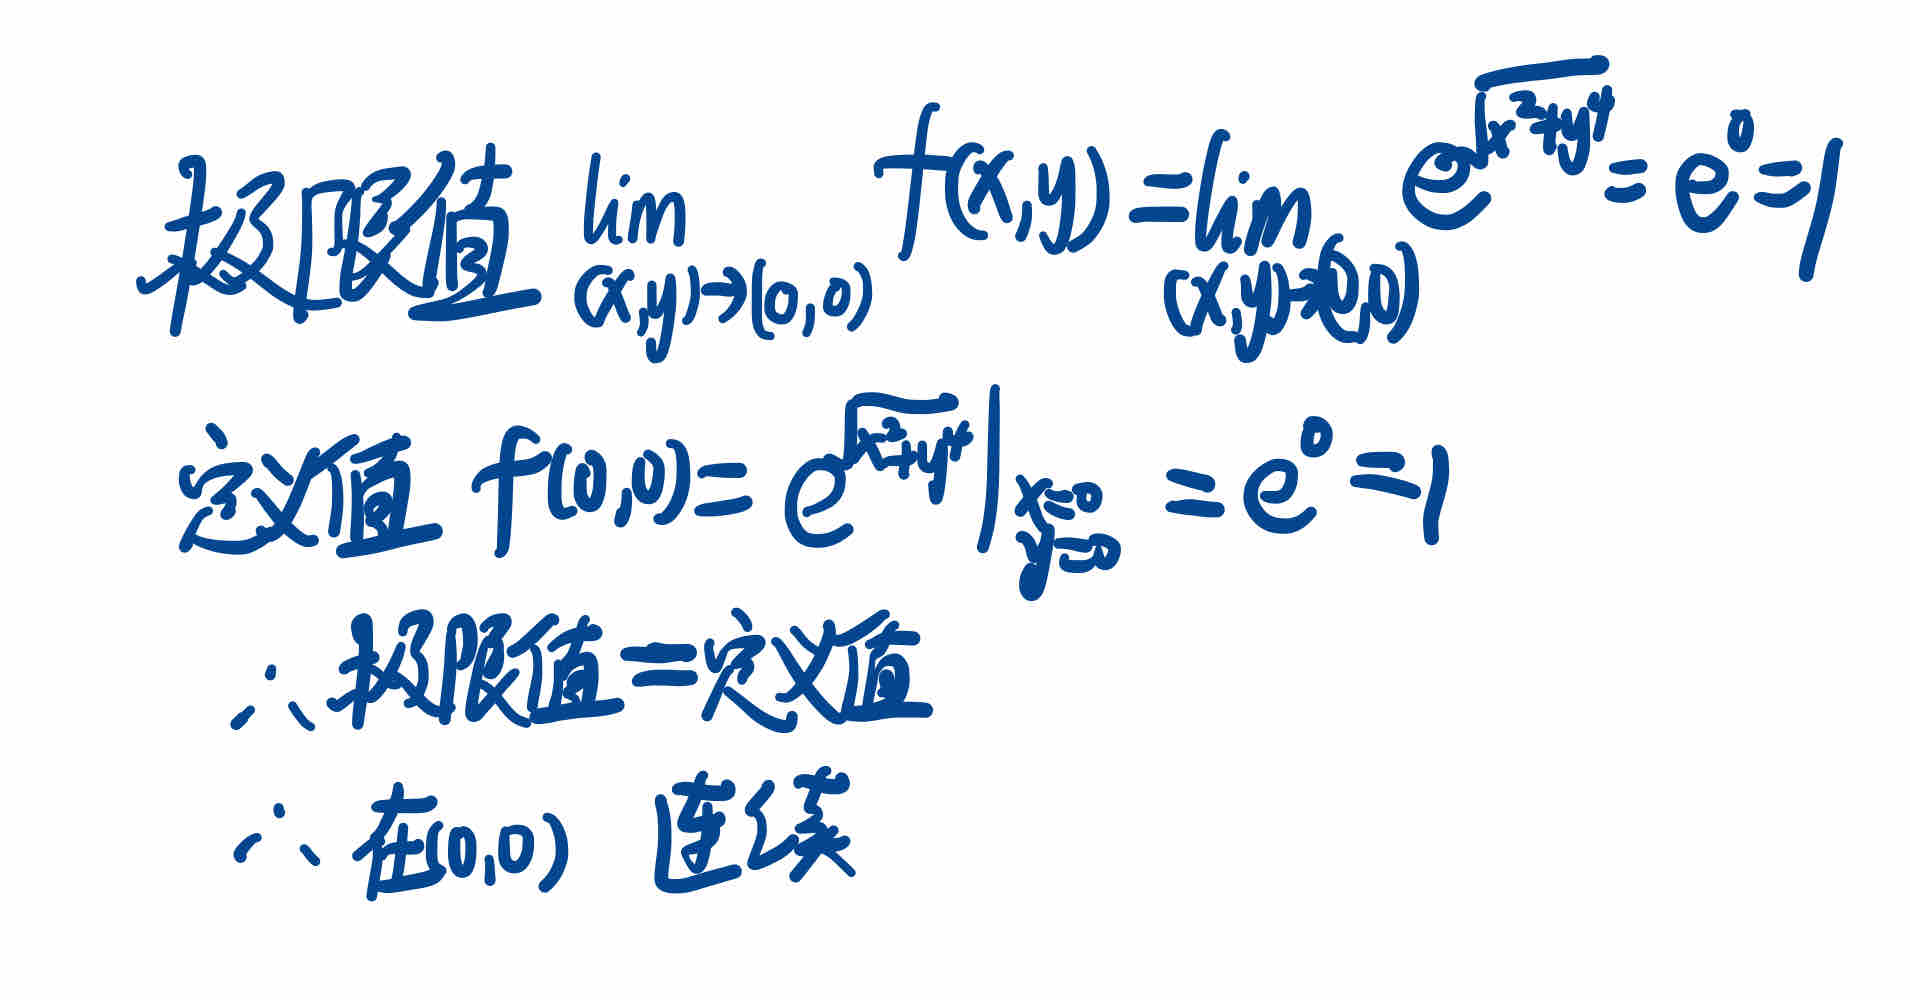 极限值 lim_{(x,y)→(0,0)} f(x,y) = lim_{(x,y)→(0,0)} e^{√(x²+y⁴)} = e⁰ = 1
定义值 f(0,0) = e^{√(x²+y⁴)} |_{x=0 y=0} = e⁰ = 1
∴ 极限值 = 定义值
∴ 在(0,0) 连续